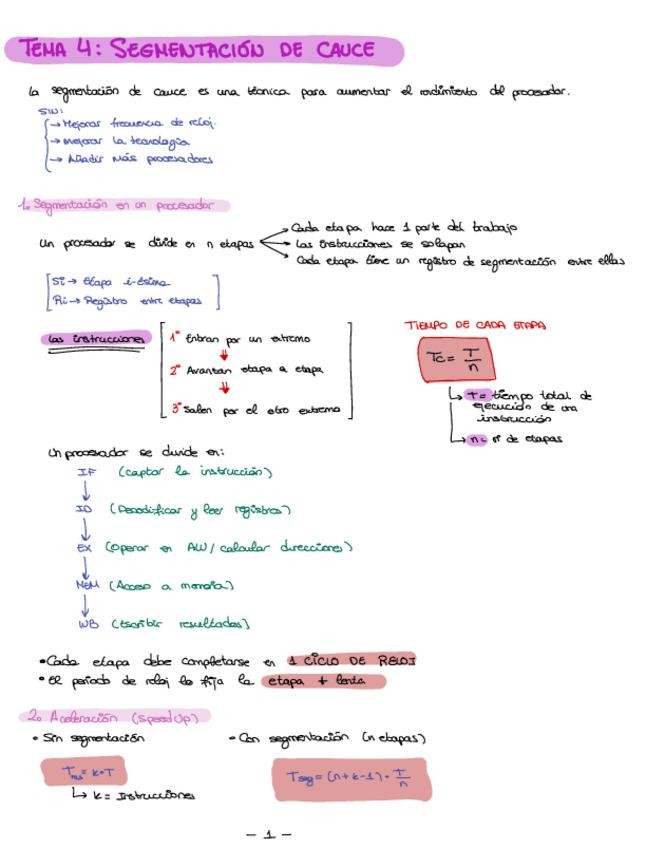 TEMA 4: SEGMENTACIÓN DE CAUCE
La segmentación de cauce es una técnica para aumentar el rendimiento del procesador.
SIN:
→ Mejorar frecuencia de reloj.
→ Mejorar la tecnología
→ Añadir más procesadores
1. Segmentación en un procesador
Un procesador se divide en n etapas
→ Cada etapa hace 1 parte del trabajo
→ Las instrucciones se solapan
→ Cada etapa tiene un registro de segmentación entre ellas
Si → Etapa i-ésima
Ri → Registro entre etapas
Las instrucciones
1º Entran por un extremo
2º Avanzan etapa a etapa
3º Salen por el otro extremo
TIEMPO DE CADA ETAPA
Tc = T/n
T = tiempo total de
ejecución de una
instrucción
n = nº de etapas
Un procesador se divide en:
IF (captar la instrucción)
ID (Decodificar y leer registros)
EX (Operar en ALU / calcular direcciones)
MEM (Acceso a memoria)
WB (Escribir resultados)
• Cada etapa debe completarse en 1 CICLO DE RELOJ
• El periodo de reloj lo fija la etapa + lenta
2. Aceleración (SpeedUp)
• Sin segmentación
= k • T
↳ k = Instrucciones
• Con segmentación (n etapas)
Tseg = (n + k - 1) • T/n
- 1 -